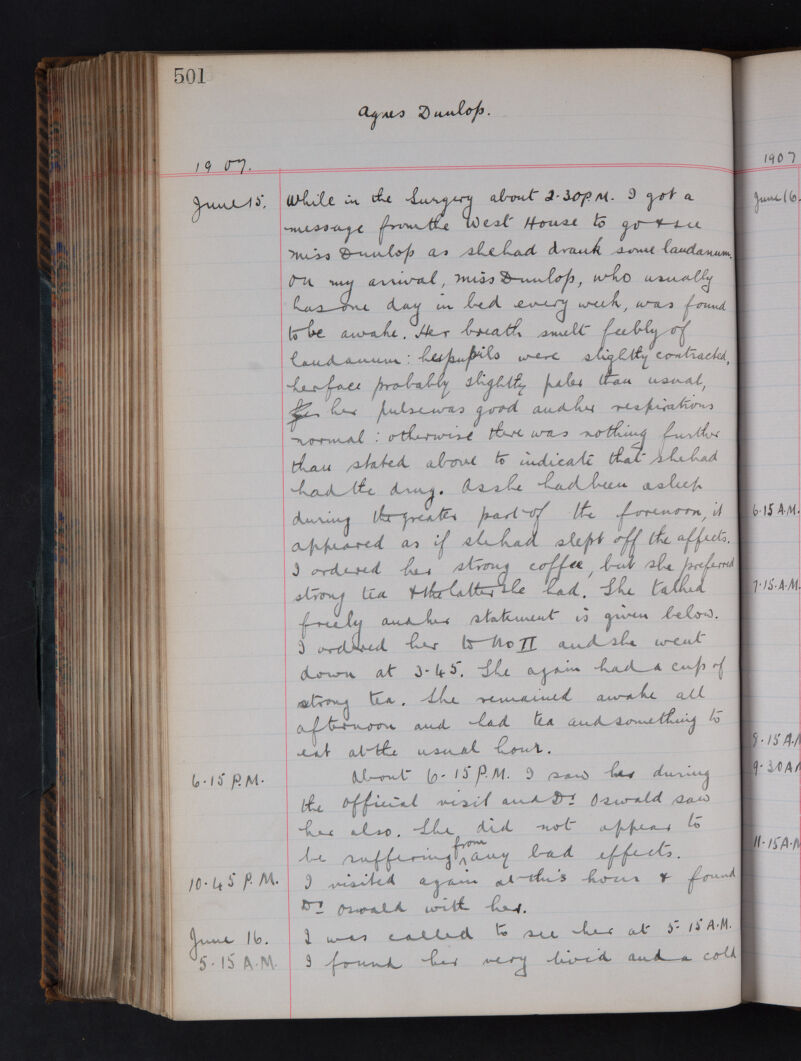 501
Agnes Dunlop.
1907.
June 15. While in the Surgery about 2.30 P.M. I got a
message from the West House to go & see
Miss Dunlop as she had drank some laudanum.
On my arrival, Miss Dunlop, who usually
has one day in bed every week, was found
to be awake. Her breath smelt feebly of
laudanum: her pupils were slightly contracted,
her face probably slightly paler than usual,
her pulse was good and her respirations
normal: otherwise there was nothing further
than stated above to indicate that she had
had the drug. As she had been asleep
during the greater part of the forenoon, it
appeared as if she had slept off the affects.
I ordered her strong coffee, but she preferred
strong tea & the latter she had. She talked
freely and her statement is given below.
I ordered her to No II and she went
down at 3-45. She again had a cup of
strong tea. She remained awake all
afternoon and had tea and something to
eat at the usual hour.
6.15 P.M. About 6.15 P.M. I saw her during
the official visit and Dr Oswald saw
her also. She did not appear to
be suffering from any bad effects.
10.45 P.M. I visited again at this hour & found
Dr Oswald with her.
June 16. I was called to see her at 5.15 A.M.
5.15 A.M. I found her very livid and a cold
1907
June 16.
6.15 A.M.
7.15 A.M.
9.15 A.M
9.30 AM
11.15 A.M